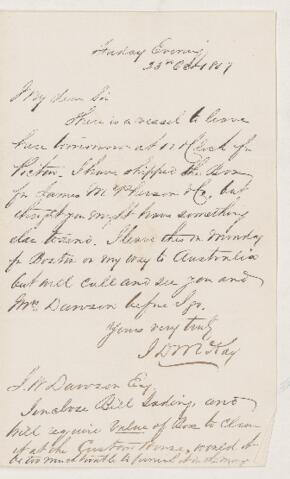 Friday Evening
23rd Oct 1857
My dear Sir
There is a vessel to leave
here tomorrow at 12 O'Clock for
Pictou. I have shipped the Box
for James McPherson & Co, but
thought you might have something
else to send. I leave this on Monday
for Boston on my way to Australia
but will call and see you and
Mrs Dawson before I go.
Yours very truly
J D McKay
J. W. Dawson Esq
I enclose Bill Lading, and
will require value of Box to Clear
it at the Custom House, would it
be too much trouble to furnish it in the mor